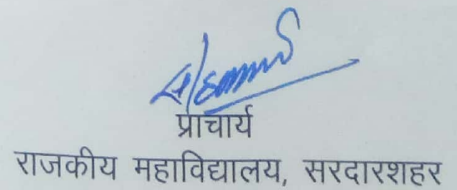 प्राचार्य
राजकीय महाविद्यालय, सरदारशहर